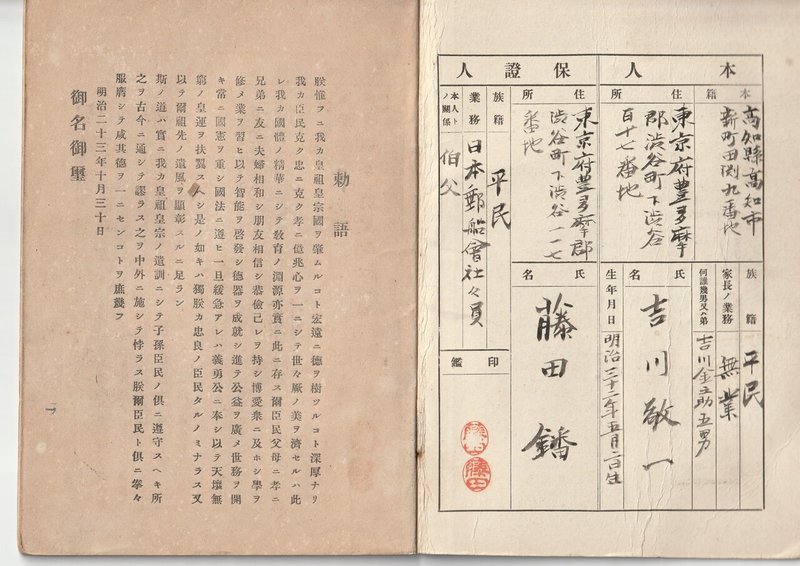 本人
本籍
高知縣高知市
新町田渕九番地
族籍
平民
家長ノ業務
無業
何誰幾男又ハ弟
吉川金之助五男
住所
東京府豊多摩
郡渋谷町下渋谷
百十七番地
氏名
吉川敬一
生年月日
明治三十二年五月二日生
保證人
住所
東京府豊多摩郡
渋谷町下渋谷一一七
番地
氏名
藤田鐇
族籍
平民
業務
日本郵船會社々員
本人トノ關係
伯父
印鑑
勅語
朕惟フニ我カ皇祖皇宗國ヲ肇ムルコト宏遠ニ德ヲ樹ツルコト深厚ナリ
我カ臣民克ク忠ニ克ク孝ニ億兆心ヲ一ニシテ世々厥ノ美ヲ濟セルハ此
レ我カ國體ノ精華ニシテ敎育ノ淵源亦實ニ此ニ存ス爾臣民父母ニ孝ニ
兄弟ニ友ニ夫婦相和シ朋友相信シ恭儉己レヲ持シ博愛衆ニ及ホシ學ヲ
修メ業ヲ習ヒ以テ智能ヲ啓發シ德器ヲ成就シ進テ公益ヲ廣メ世務ヲ開
キ常ニ國憲ヲ重シ國法ニ遵ヒ一旦緩急アレハ義勇公ニ奉シ以テ天壤無
窮ノ皇運ヲ扶翼スヘシ是ノ如キハ獨朕カ忠良ノ臣民タルノミナラス又
以テ爾祖先ノ遺風ヲ顯彰スルニ足ラン
斯ノ道ハ實ニ我カ皇祖皇宗ノ遺訓ニシテ子孫臣民ノ俱ニ遵守スヘキ所
之ヲ古今ニ通シテ謬ラス之ヲ中外ニ施シテ悖ラス朕爾臣民ト俱ニ拳々
服膺シテ咸其德ヲ一ニセンコトヲ庶幾フ
明治二十三年十月三十日
御名御璽